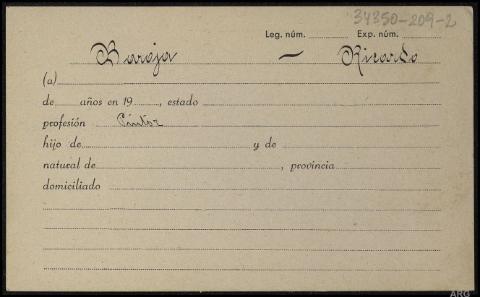 34350-209-2
Leg. núm. Exp. núm.
Baroja — Ricardo
(a)
de años en 19 , estado
profesión Pintor
hijo de y de
natural de , provincia
domiciliado
ARG